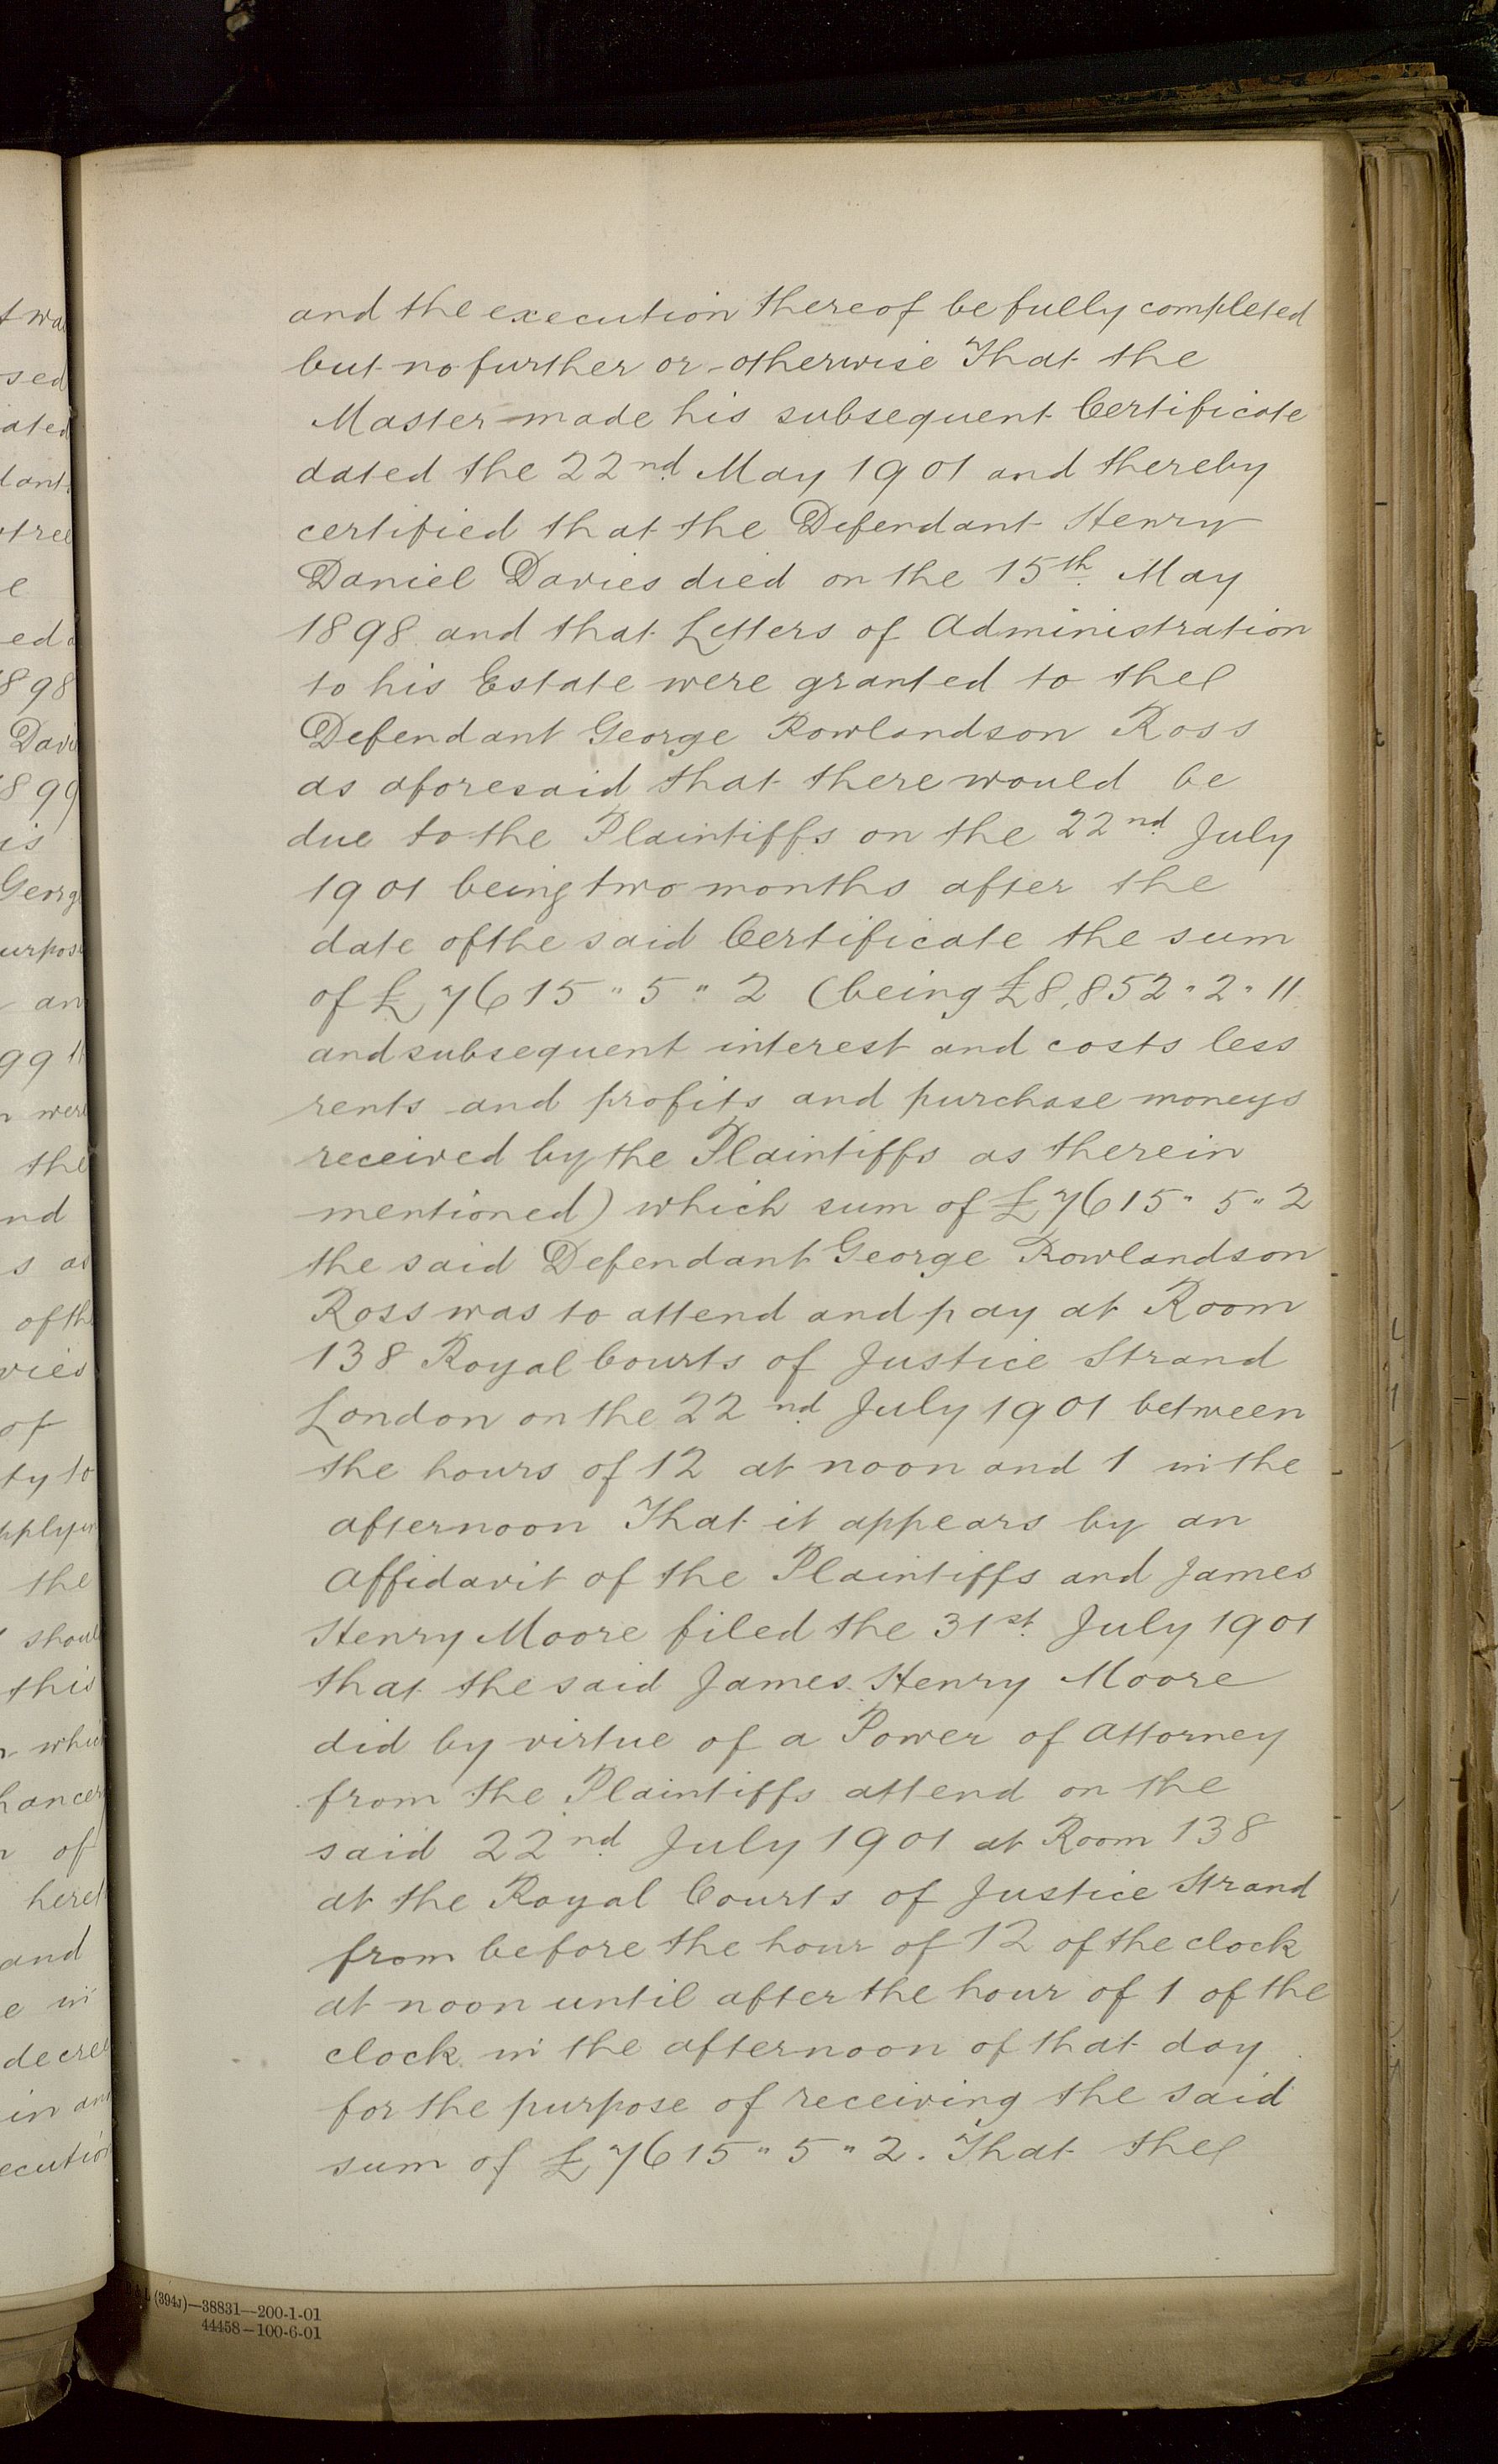 and the execution thereof be fully completed
but no further or otherwise That the
Master made his subsequent Certificate
dated the 22nd May 1901 and thereby
certified that the Defendant Henry
Daniel Davies died on the 15th May
1898 and that Letters of Administration
to his Estate were granted to the
Defendant George Rowlandson Ross
as aforesaid that there would be
due to the Plaintiffs on the 22nd July
1901 being two months after the
date of the said Certificate the sum
of £7615 " 5 " 2 (being £8,852 " 2 " 11
and subsequent interest and costs less
rents and profits and purchase moneys
received by the Plaintiffs as therein
mentioned) which sum of £7615 " 5 " 2
the said Defendant George Rowlandson
Ross was to attend and pay at Room
138 Royal Courts of Justice Strand
London on the 22nd July 1901 between
the hours of 12 at noon and 1 in the
afternoon That it appears by an
Affidavit of the Plaintiffs and James
Henry Moore filed the 31st July 1901
that the said James Henry Moore
did by virtue of a Power of Attorney
from the Plaintiffs attend on the
said 22nd July 1901 at Room 138
at the Royal Courts of Justice Strand
from before the hour of 12 of the clock
at noon until after the hour of 1 of the
clock in the afternoon of that day
for the purpose of receiving the said
sum of £7615 " 5 " 2. That the
(394J)—38831—200-1-01
44458—100-6-01